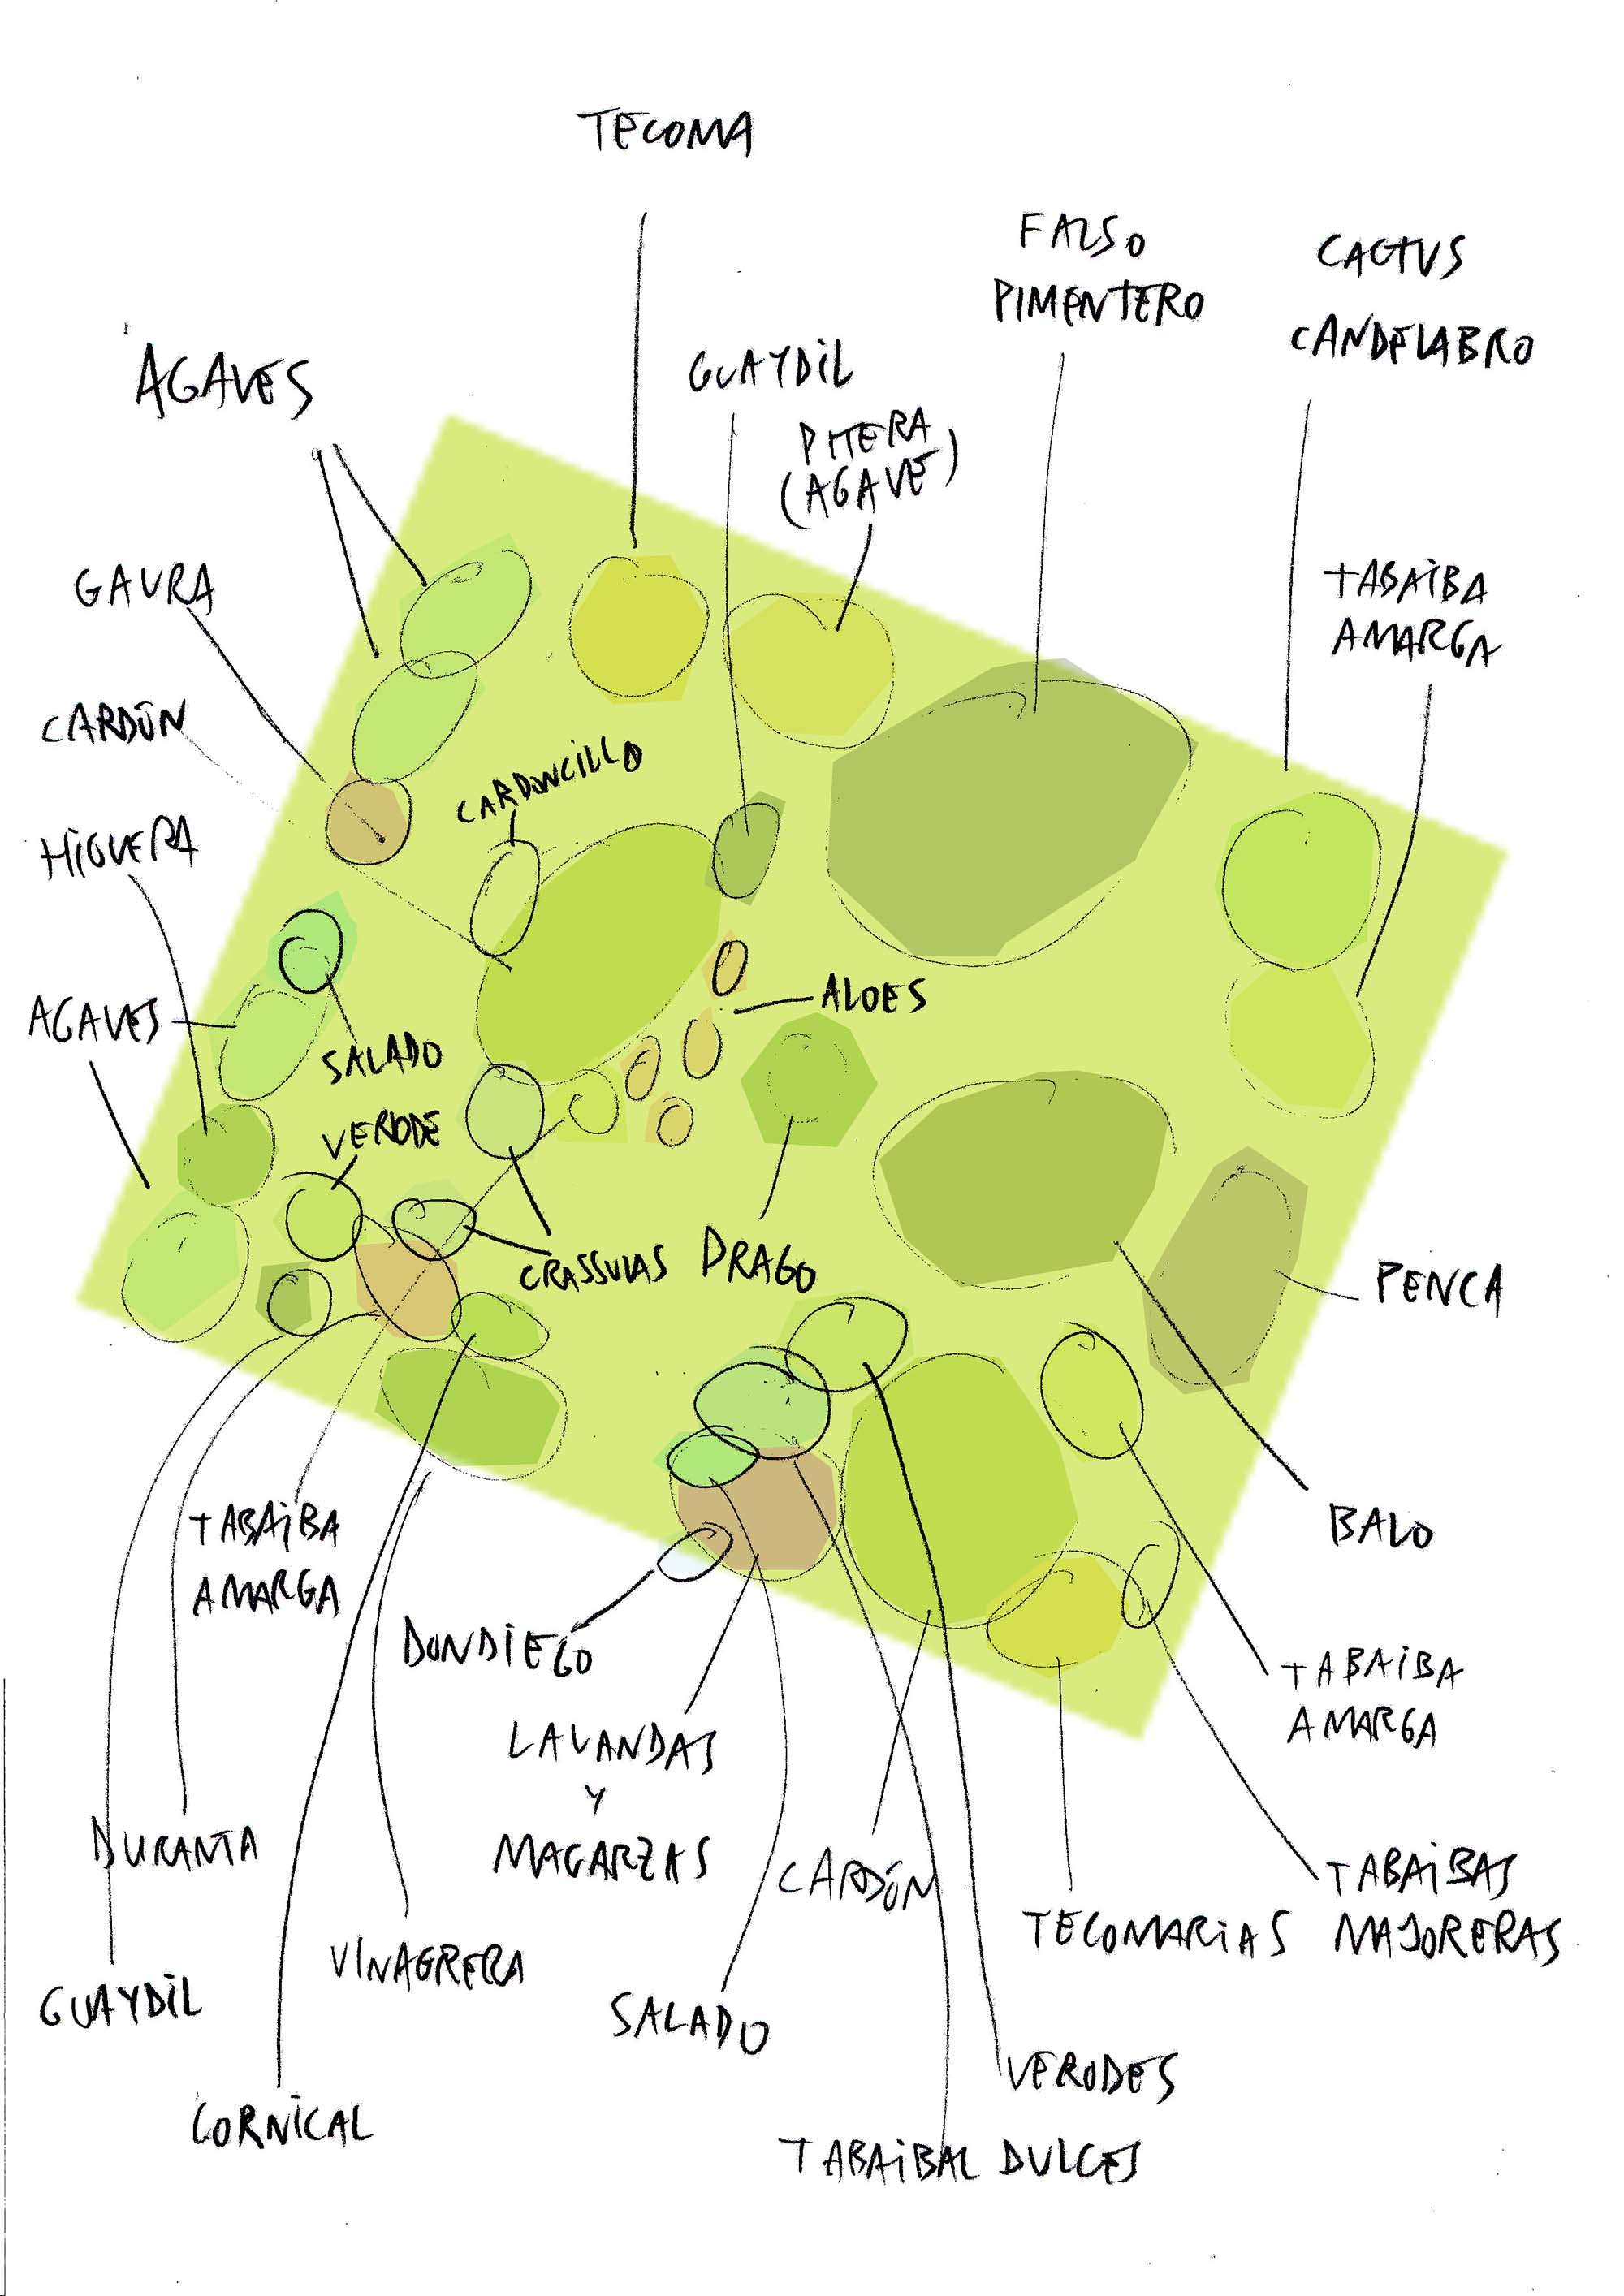 TECOMA
FALSO
PIMENTERO
CACTUS
CANDELABRO
AGAVES
GUAYDIL
PITERA
(AGAVE)
GAURA
TABAIBA
AMARGA
CARDÓN
CARDONCILLO
HIGUERA
AGAVES
ALOES
SALADO
VERODE
CRASSULAS
DRAGO
PENCA
BALO
TABAIBA
AMARGA
DONDIEGO
TABAIBA
AMARGA
LAVANDAS
Y
MAGARZAS
DURANTA
CARDÓN
TECOMARIAS
TABAIBAS
MAJORERAS
VINAGRERA
GUAYDIL
SALADO
VERODES
CORNICAL
TABAIBAL DULCES